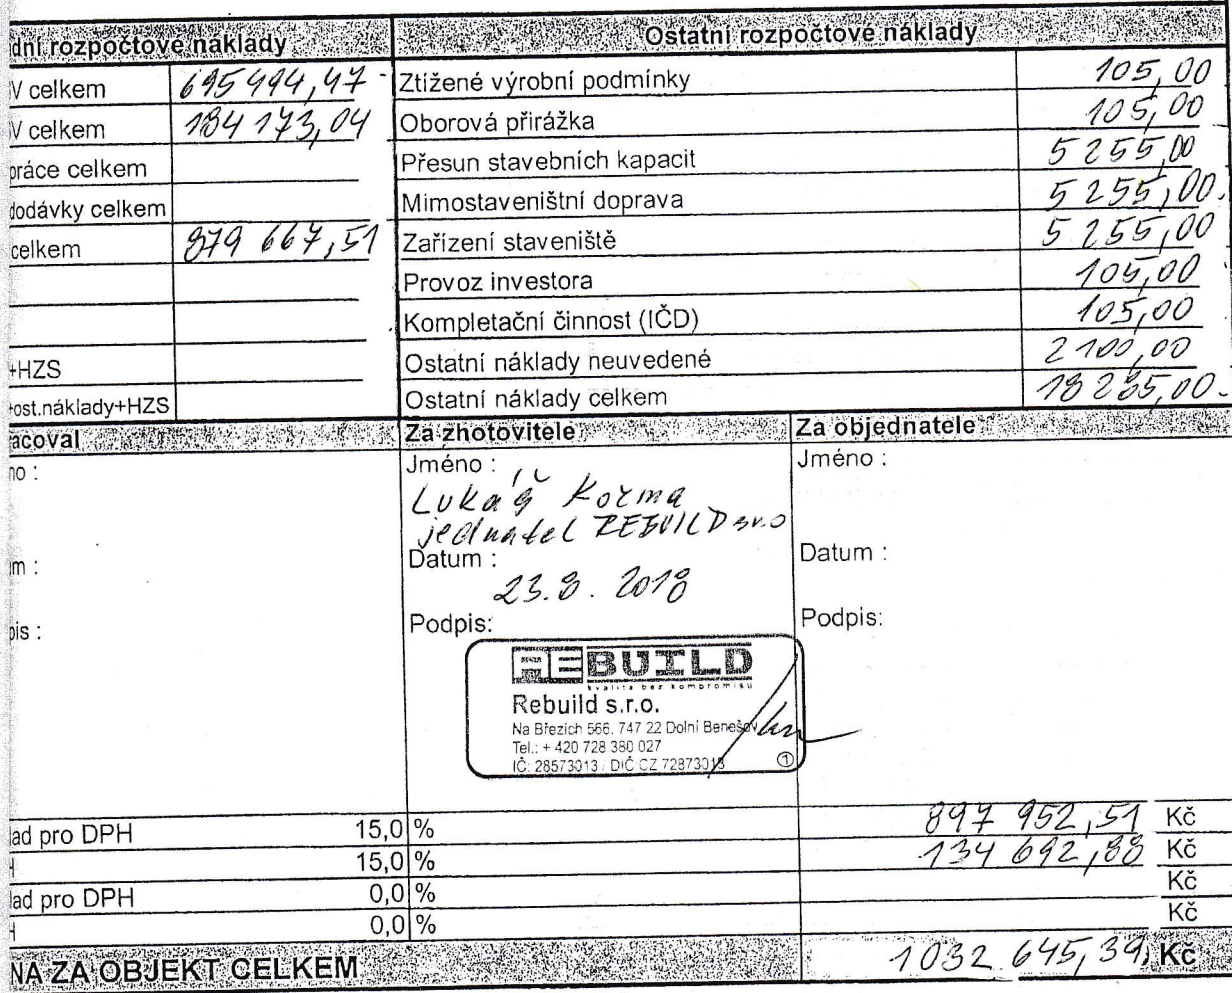 dní rozpočtové náklady Ostatní rozpočtové náklady
V celkem 695 494,47 Ztížené výrobní podmínky 105,00
V celkem 184 173,04 Oborová přirážka 105,00
práce celkem Přesun stavebních kapacit 5 255,00
dodávky celkem Mimostaveništní doprava 5 255,00
celkem 879 667,51 Zařízení staveniště 5 255,00
Provoz investora 105,00
Kompletační činnost (IČD) 105,00
+HZS Ostatní náklady neuvedené 2 100,00
+ost.náklady+HZS Ostatní náklady celkem 18 285,00
acoval Za zhotovitele Za objednatele
no : Jméno : Jméno :
Lukáš Kozma
jednatel REBUILD s.r.o
m : Datum : Datum :
23.8. 2018
pis : Podpis: Podpis:
REBUILD
kvalita bez kompromisů
Rebuild s.r.o.
Na Březích 566, 747 22 Dolní Benešov
Tel.: + 420 728 380 027
IČ: 28573013 / DIČ:CZ 72873013 1
ad pro DPH 15,0 % 897 952,51 Kč
H 15,0 % 134 692,88 Kč
lad pro DPH 0,0 % Kč
H 0,0 % Kč
NA ZA OBJEKT CELKEM 1032 645,39 Kč